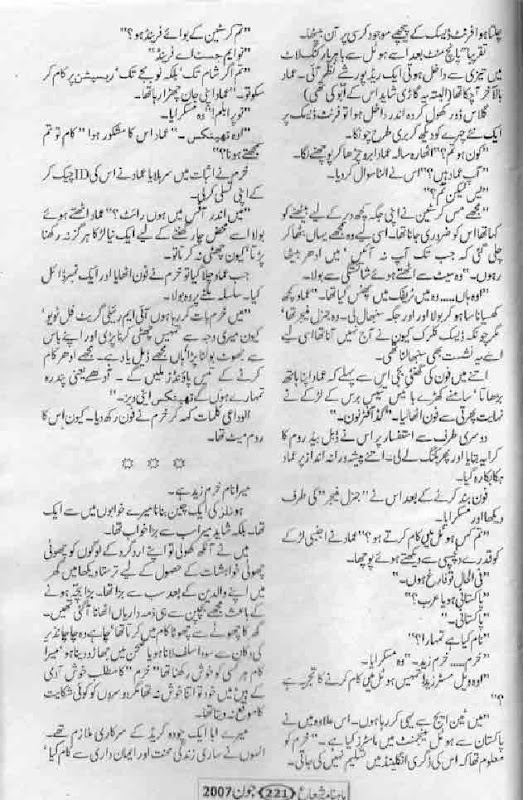 چلتا ہوا فرنٹ ڈیسک کے پیچھے موجود کرسی پر آن بیٹھا۔
تقریباً پانچ منٹ بعد اسے ہوٹل سے باہر پارکنگ لاٹ
میں تیزی سے داخل ہوتی ایک ریڈ پورشے نظر آئی۔ عماد
بالآخر آچکا تھا (البتہ یہ گاڑی شاید اس کے ابو کی تھی)
گلاس ڈور کھول کر وہ اندر داخل ہوا تو فرنٹ ڈیسک پر
ایک نئے چہرے کو دیکھ کر بری طرح چونکا۔
"کون ہو تم؟" اٹھارہ سالہ عماد ابرو چڑھا کر پوچھنے لگا۔
"آپ عماد ہیں؟" اس نے الٹا سوال کر دیا۔
"لیس لیکن تم؟"
"مجھے مس کرسٹین نے اپنی جگہ کچھ دیر کے لیے بیٹھنے کو
کہا تھا اس کو ضروری جانا تھا۔ اسی لیے وہ مجھے یہاں بٹھا کر
چلی گئی کہ جب تک آپ نہ آئیں 'میں ادھر بیٹھا
رہوں۔" وہ سیٹ سے اٹھتے ہوئے شائستگی سے بولا۔
"اوہ ہاں..... وہ میں ٹریفک میں پھنس گیا تھا۔" عماد کچھ
کھسیانا سا ہو کر بولا اور اور جگہ سنبھال لی۔ وہ جنرل منیجر تھا
مگر چونکہ ڈیسک کلرک کیون نے آج نہیں آنا تھا اسی لیے
اسے یہ نشست بھی سنبھالنی تھی۔
اتنے میں فون کی گھنٹی بجی اس سے پہلے کہ عماد اپنا ہاتھ
بڑھاتا' سامنے کھڑے بائیس تئیس برس کے لڑکے نے
نہایت پھرتی سے فون اٹھالیا۔ "گڈ آفٹر نون۔"
دوسری طرف سے استفسار پر اس نے ڈبل بیڈ روم کا
کرایہ بتایا اور پھر بکنگ لے لی۔ اتنے پیشہ ورانہ انداز پر عماد
ہکا بکا رہ گیا۔
فون بند کرنے کے بعد اس نے "جنرل منیجر" کی طرف
دیکھا اور مسکرایا۔
"تم کس ہوٹل میں کام کرتے ہو؟" عماد نے اجنبی لڑکے
کو قدرے دلچسپی سے دیکھتے ہوئے پوچھا۔
"فی الحال تو فارغ ہوں۔"
"پاکستانی ہو یا عرب؟"
"پاکستانی۔"
"نام کیا ہے تمہارا؟"
"خرم..... خرم زید۔" وہ مسکرایا۔
"اوہ ویل مسٹر زید! تمہیں ہوٹل میں کام کرنے کا تجربہ ہے
؟"
"میں ٹین ایج سے یہی کر رہا ہوں۔ اس علاوہ میں نے
پاکستان سے ہوٹل مینجمنٹ میں ماسٹرز کیا ہے۔" خرم کو
معلوم تھا کہ اس کی ڈگری انگلینڈ میں تسلیم نہیں کی جاتی۔
"تم کرسٹین کے بوائے فرینڈ ہو؟"
"نو ایم جسٹ اے فرینڈ"
"تم اگر شام تک 'بلکہ نو بجے تک' ریسپشن پر کام کر
سکو تو۔" عماد اپنی جان چھڑا رہا تھا۔
"نو پرابلم!" وہ مسکرایا۔
"اوہ تھینکس۔" عماد اس کا مشکور ہوا "کام تو تم
سمجھتے ہونا؟"
خرم نے اثبات میں سر ہلایا عماد نے اس کی ID چیک کر
کے اپنی تسلی کر لی۔
"میں اندر آفس میں ہوں رائٹ؟" عماد اٹھتے ہوئے
بولا اسے محض چار گھنٹے کے لیے ایک نیا لڑکا ہر گز نہ رکھنا
پڑتا' کیون چھٹی نہ کرتا تو۔
جب عماد چلا گیا تو خرم نے فون اٹھایا اور ایک نمبر ڈائل
کیا۔ سلسلہ ملنے پر وہ بولا۔
"میں خرم بات کر رہا ہوں آئی ایم رئیلی گریٹ فل ٹو یو'
کیون میری وجہ سے تمہیں چھٹی کرنا پڑی اور اپنے باس
سے جھوٹ بولنا پڑا 'ہاں مجھے ڈیل یاد ہے۔ مجھے ادھر کام
کرنے کے تیس پاؤنڈز ملیں گے۔ آدھے یعنی پندرہ
تمہارے ہوں گے تھینکس اپنی ویز۔"
الوداعی کلمات کہہ کر خرم نے فون رکھ دیا۔ کیون اس کا
روم میٹ تھا۔
☼ ☼ ☼
میرا نام خرم زید ہے۔
ہوٹلز کی ایک چین بنانا میرے خوابوں میں سے ایک
تھا۔ بلکہ شاید میرا سب سے بڑا خواب تھا۔
میں نے آنکھ کھولی تو اپنے ارد گرد کے لوگوں کو چھوٹی
چھوٹی خواہشات کے حصول کے لیے ترستا دیکھا میں گھر
میں اپنے والدین کے بعد سب سے بڑا تھا۔ بڑا بچہ ہونے
کے باعث مجھے بچپن سے ہی ذمہ داریاں اٹھانا آ گئی تھیں۔
گھر کا چھوٹے سے چھوٹا کام میں کرتا تھا' چاہے وہ چاچا نذیر
کی دکان سے سودا سلف لانا ہو یا صحن میں جھاڑو دینا ہو' میرا
کام ہر کسی کو خوش رکھنا تھا "خرم" کا مطلب خوش آدمی
کے ہیں میں خود تو اتنا خوش نہ تھا مگر دوسروں کو کوئی شکایت
کا موقع نہ دیتا تھا۔
میرے ابا ایک چودہ گریڈ کے سرکاری ملازم تھے۔
انہوں نے ساری زندگی محنت اور ایمان داری سے کام کیا'
ماہنامہ شعاع 221 جون 2007